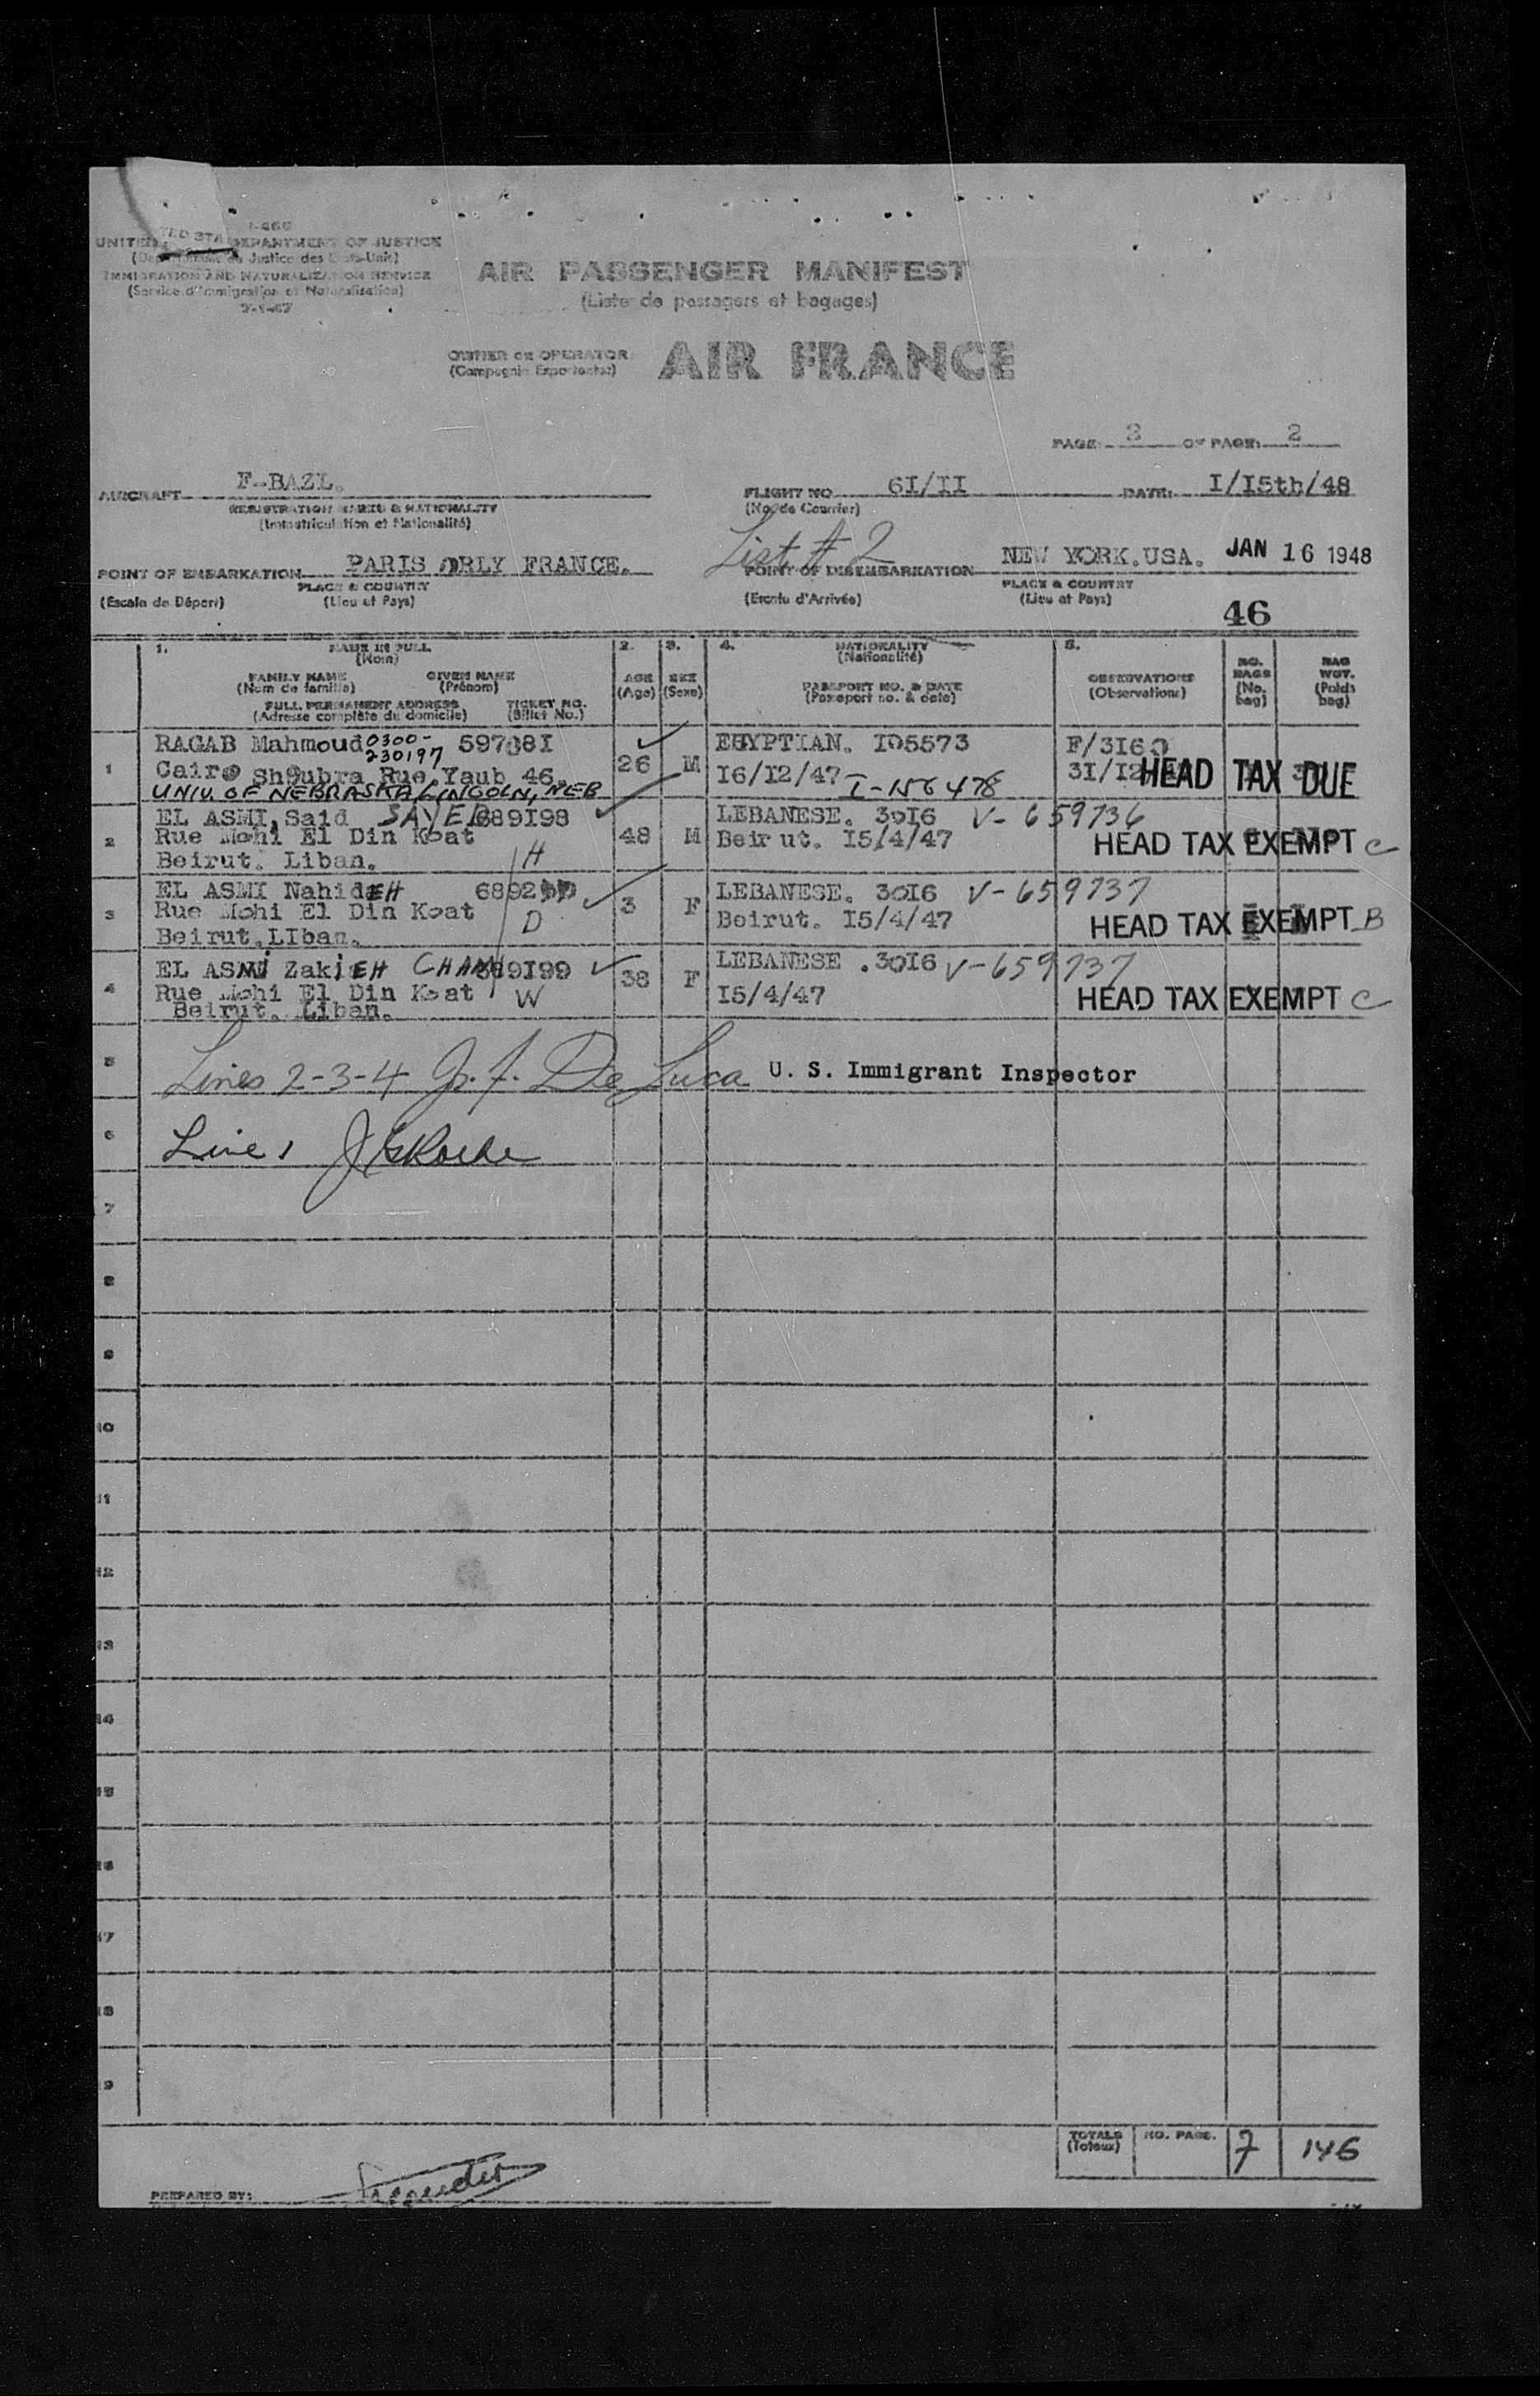 I-466
UNITED STATES DEPARTMENT OF JUSTICE
IMMIGRATION AND NATURALIZATION SERVICE
(Service d'Immigration et Naturalisation)
7-1-47
AIR PASSENGER MANIFEST
(Liste de passagers et bagages)
OWNER OR OPERATOR AIR FRANCE
PAGE: 2 OF PAGE: 2
AIRCRAFT F-BAZL.
REGISTRATION MARKS & NATIONALITY
(Immatriculation et Nationalité)
FLIGHT NO 6I/II DATE: I/I5th/48
(No de Courrier)
List # 2
POINT OF EMBARKATION PARIS ORLY FRANCE.
PLACE & COUNTRY
(Escale de Départ) (Lieu et Pays)
POINT OF DISEMBARKATION NEW YORK.USA. JAN 16 1948
PLACE & COUNTRY
(Escale d'Arrivée) (Lieu et Pays)
46
1. NAME IN FULL 2. 3. 4. NATIONALITY 5.
(Nom) (Nationalité)
FAMILY NAME GIVEN NAME AGE SEX PASSPORT NO. & DATE OBSERVATIONS NO. BAGS BAG WGT.
(Nom de famille) (Prénom) (Age) (Sexe) (Passeport no. & date) (Observations) (No. bag) (Poids bag)
FULL PERMANENT ADDRESS TICKET NO.
(Adresse complète du domicile) (Billet No.)
1 RAGAB Mahmoud 0300- 59708I 26 M EGYPTIAN. I05573 F/3160
230197
Cairo Shoubra Rue.Yaub 46. I6/I2/47 I-156478 HEAD TAX DUE
UNIV. OF NEBRASKA, LINCOLN, NEB
2 EL ASMI, Said SAYED 689I98 48 M LEBANESE. 30I6 V-659736
Rue Mohi El Din Koat Beirut. I5/4/47 HEAD TAX EXEMPT C
Beirut. Liban. H
3 EL ASMI NahidEH 3 F LEBANESE. 30I6 V-659737
Rue Mohi El Din Koat Beirut. I5/4/47 HEAD TAX EXEMPT B
Beirut.LIban. D
4 EL ASMI ZakiEH 689I99 38 F LEBANESE .30I6 V-659737
Rue Mohi El Din Koat I5/4/47 HEAD TAX EXEMPT C
Beirut. Liban. W
5 Lines 2-3-4 De Luca U. S. Immigrant Inspector
6 Line 1
7
8
9
10
11
12
13
14
15
16
17
18
9
TOTALS NO. PASS. 7 146
(Totaux)
PREPARED BY: